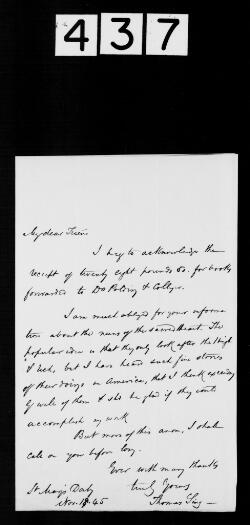 437
My dear Friend
I beg to acknowledge the
receipt of twenty eight pounds for books
forwarded to Drs & Collyer.
I am much obliged for your informa
tion about the nuns of the Sacred heart. The
popular idea is that they only look after the high
& rich, but I have heard such fine stories
of their doings in America, that I think exceeding
ly well of them & shd be glad if they could
accomplish my work
But more of this anon, I shall
call on you before long.
Ever with many thanks
truly yours
St Mary's Derby
Nov. 18.45
Thomas